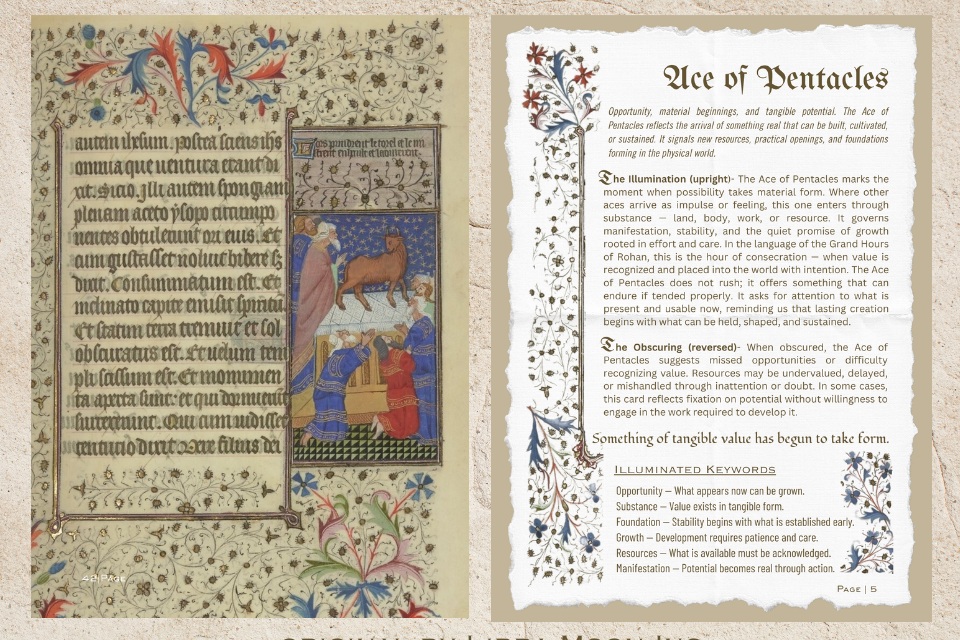 autem ihesum. postea sciens ihs
omnia que uentura erant di
xit. Sicio. Illi autem spongiam
plenam aceto ysopo circumpo
nentes obtulerunt ori eius. Et
cum gustasset noluit bibere
dixit. Consummatum est. Et
inclinato capite emisit
Et statim terra tremuit et sol
obscuratus est. Et uelum tem
pli scissum est. Et monumen
ta aperta sunt. et qui
surrexerunt. Qui cum
centurio dixit. Vere filius dei
Ace of Pentacles
Opportunity, material beginnings, and tangible potential. The Ace of
Pentacles reflects the arrival of something real that can be built, cultivated,
or sustained. It signals new resources, practical openings, and foundations
forming in the physical world.
The Illumination (upright)- The Ace of Pentacles marks the
moment when possibility takes material form. Where other
aces arrive as impulse or feeling, this one enters through
substance — land, body, work, or resource. It governs
manifestation, stability, and the quiet promise of growth
rooted in effort and care. In the language of the Grand Hours
of Rohan, this is the hour of consecration — when value is
recognized and placed into the world with intention. The Ace
of Pentacles does not rush; it offers something that can
endure if tended properly. It asks for attention to what is
present and usable now, reminding us that lasting creation
begins with what can be held, shaped, and sustained.
The Obscuring (reversed)- When obscured, the Ace of
Pentacles suggests missed opportunities or difficulty
recognizing value. Resources may be undervalued, delayed,
or mishandled through inattention or doubt. In some cases,
this card reflects fixation on potential without willingness to
engage in the work required to develop it.
Something of tangible value has begun to take form.
Illuminated Keywords
Opportunity – What appears now can be grown.
Substance – Value exists in tangible form.
Foundation – Stability begins with what is established early.
Growth – Development requires patience and care.
Resources – What is available must be acknowledged.
Manifestation – Potential becomes real through action.
Page | 5